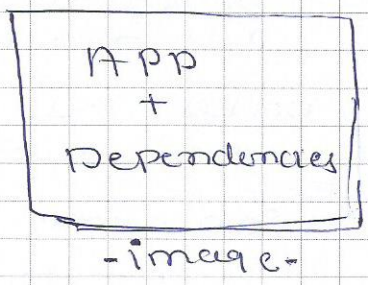 APP
+
Dependencies
-image-